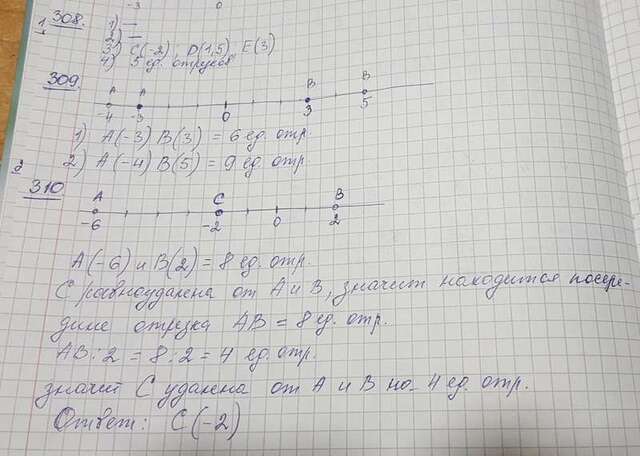 -3 0
308. 1) —
2) —
3) C(-2) D(1,5) E(3)
4) 5 ед. отрезков
309.
A A B B
-4 -3 0 3 5
1) A(-3) B(3) = 6 ед. отр.
2) A(-4) B(5) = 9 ед. отр
310
A C B
-6 -2 0 2
A(-6) и B(2) = 8 ед. отр.
C равноудалена от A и B, значит находится посере-
дине отрезка AB = 8 ед. отр.
AB : 2 = 8 : 2 = 4 ед. отр.
значит C удалена от A и B на 4 ед. отр.
Ответ: C(-2)